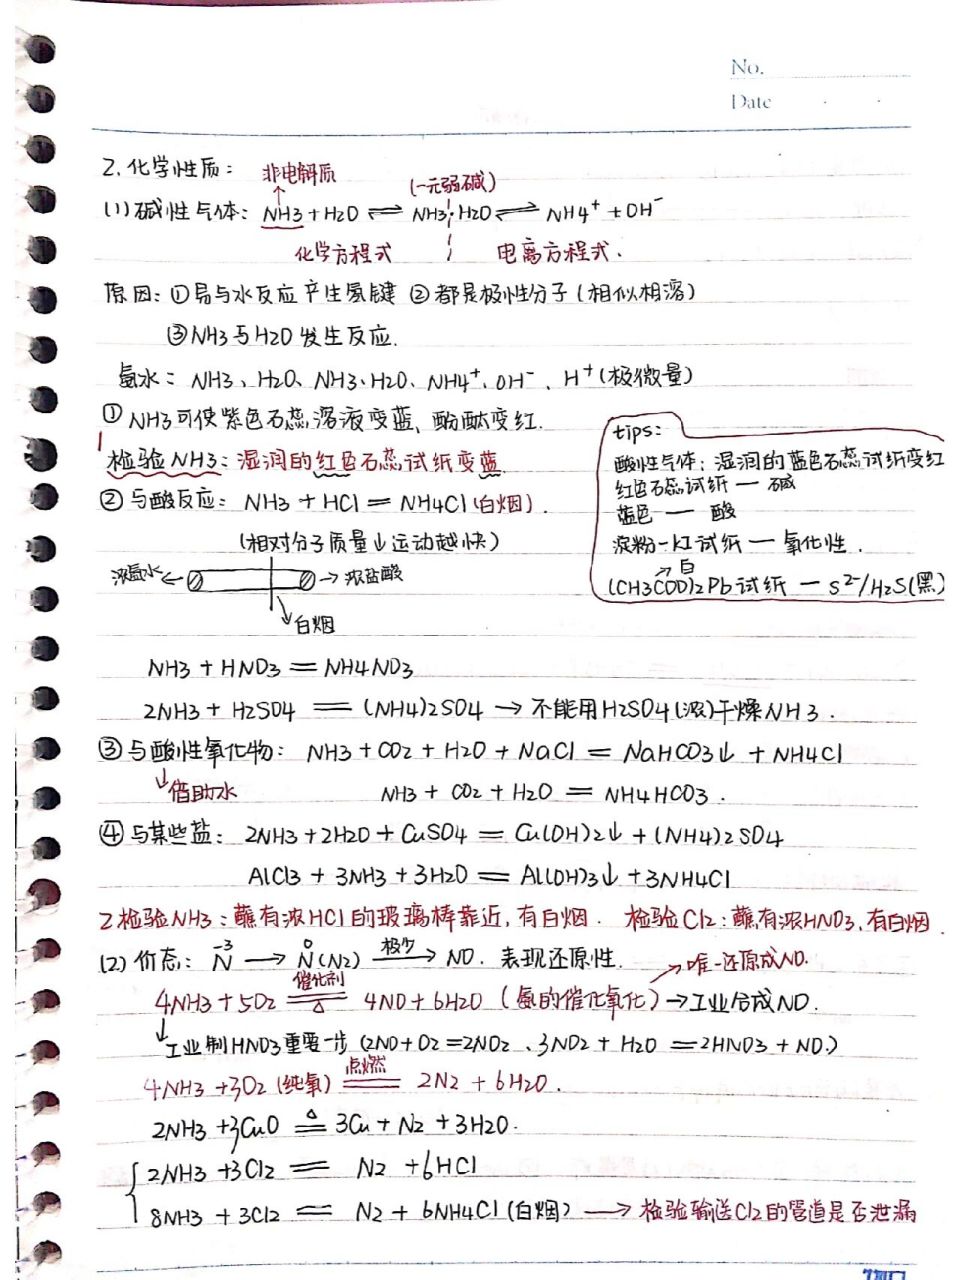 No.
Date
2.化学性质：
非电解质
(一元弱碱)
(1)碱性气体：NH3+H2O⇌NH3·H2O⇌NH4⁺+OH⁻
化学方程式 电离方程式.
原因：①易与水反应产生氢键 ②都是极性分子(相似相溶)
③NH3与H2O发生反应.
氨水：NH3、H2O、NH3·H2O、NH4⁺、OH⁻、H⁺(极微量)
①NH3可使紫色石蕊溶液变蓝、酚酞变红.
1检验NH3：湿润的红色石蕊试纸变蓝
②与酸反应：NH3+HCl=NH4Cl(白烟).
(相对分子质量↓运动越快)
浓氨水← →浓盐酸
白烟
tips:
酸性气体：湿润的蓝色石蕊试纸变红
红色石蕊试纸—碱
蓝色—酸
淀粉-KI试纸—氧化性.
→白
(CH3COO)2Pb试纸—S²⁻/H2S(黑)
NH3+HNO3=NH4NO3
2NH3+H2SO4=(NH4)2SO4→不能用H2SO4(浓)干燥NH3.
③与酸性氧化物：NH3+CO2+H2O+NaCl=NaHCO3↓+NH4Cl
↓借助水 NH3+CO2+H2O=NH4HCO3.
④与某些盐：2NH3+2H2O+CuSO4=Cu(OH)2↓+(NH4)2SO4
AlCl3+3NH3+3H2O=Al(OH)3↓+3NH4Cl
2检验NH3：蘸有浓HCl的玻璃棒靠近,有白烟. 检验Cl2：蘸有浓HNO3,有白烟.
(2)价态：N(-3)→N(0)(N2) 极少→NO. 表现还原性. →唯一还原成NO.
催化剂
4NH3+5O2=4NO+6H2O(氨的催化氧化)→工业合成NO.
△
↓工业制HNO3重要一步(2NO+O2=2NO2、3NO2+H2O=2HNO3+NO.)
点燃
4NH3+3O2(纯氧)=2N2+6H2O.
△
2NH3+3CuO=3Cu+N2+3H2O.
2NH3+3Cl2=N2+6HCl
8NH3+3Cl2=N2+6NH4Cl(白烟)→检验输送Cl2的管道是否泄漏